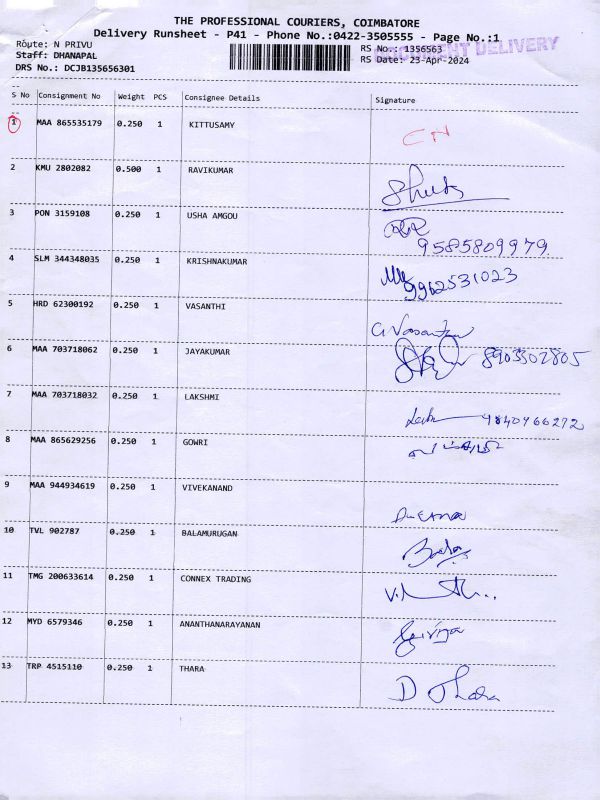 THE PROFESSIONAL COURIERS, COIMBATORE
Delivery Runsheet - P41 - Phone No.:0422-3505555 - Page No.:1
Route: N PRIVU RS No.: 1356563
DOCUMENT DELIVERY
Staff: DHANAPAL RS Date: 23-Apr-2024
DRS No.: DCJB135656301
S No Consignment No Weight PCS Consignee Details Signature
1 MAA 865535179 0.250 1 KITTUSAMY CN
2 KMU 2802082 0.500 1 RAVIKUMAR
3 PON 3159108 0.250 1 USHA AMGOU
9585809979
4 SLM 344348035 0.250 1 KRISHNAKUMAR
9962531023
5 HRD 62300192 0.250 1 VASANTHI
G Vasantha
6 MAA 703718062 0.250 1 JAYAKUMAR 8903302805
7 MAA 703718032 0.250 1 LAKSHMI
9840966272
8 MAA 865629256 0.250 1 GOWRI
9 MAA 944934619 0.250 1 VIVEKANAND
10 TVL 902787 0.250 1 BALAMURUGAN
11 TMG 200633614 0.250 1 CONNEX TRADING
12 MYD 6579346 0.250 1 ANANTHANARAYANAN
13 TRP 4515110 0.250 1 THARA
D Thara